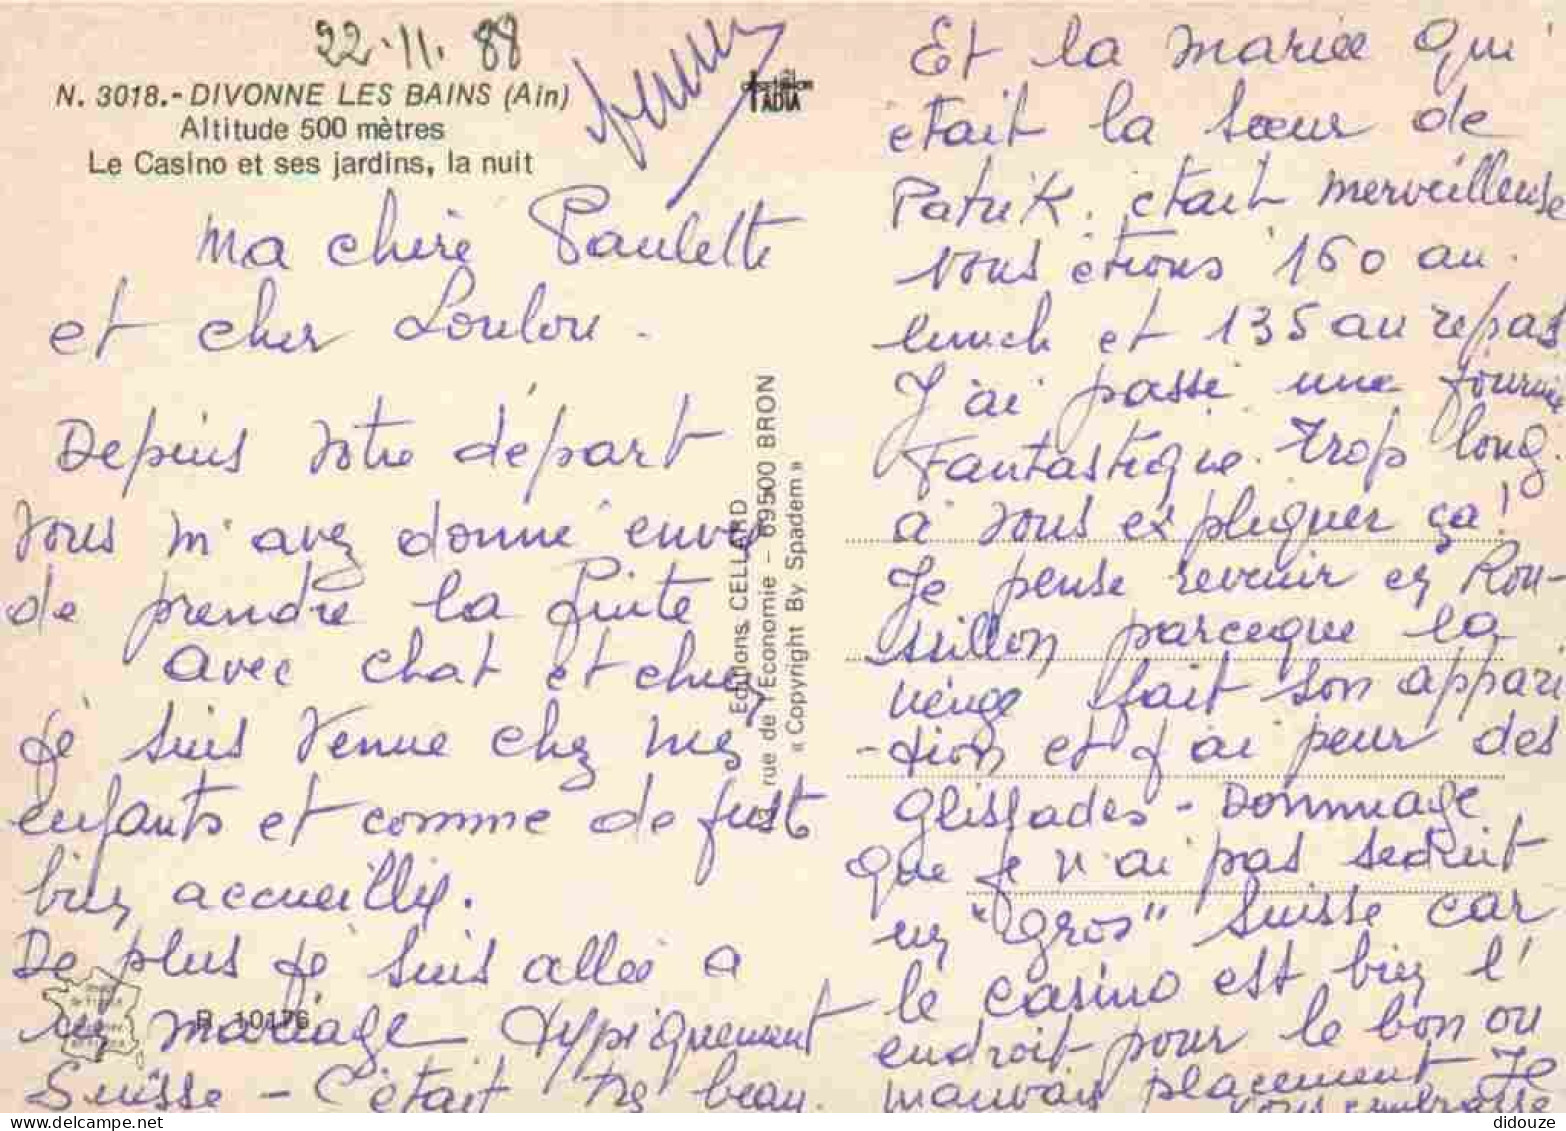 22.11.88
N. 3018.- DIVONNE LES BAINS (Ain)
Altitude 500 mètres
Le Casino et ses jardins, la nuit
ADIA
Ma chère Paulette
et cher Loulou.
Depuis votre départ
vous m'avez donné envie
de prendre la fuite
avec chat et chien
je suis venue chez mes
enfants et comme de juste
bien accueillie.
De plus je suis allée a
un mariage typiquement
Suisse - C'était très beau.
R 10176
Editions CELLARD
rue de l'Economie - 69500 BRON
« Copyright By Spadem »
Et la mariée qui
était la sœur de
Patrik. était merveilleuse
nous étions 160 au
lunch et 135 au repas
J'ai passé une journée
Fantastique. trop long.
a vous expliquer ça!
Je pense revenir en Rou-
ssillon parceque la
neige fait son appari
-tion et j'ai peur des
Glissades - Dommage
que je n'ai pas seduit
un "gros" Suisse car
le casino est bien l'
endroit pour le bon ou
mauvais placement Je
vous embrasse
didouze